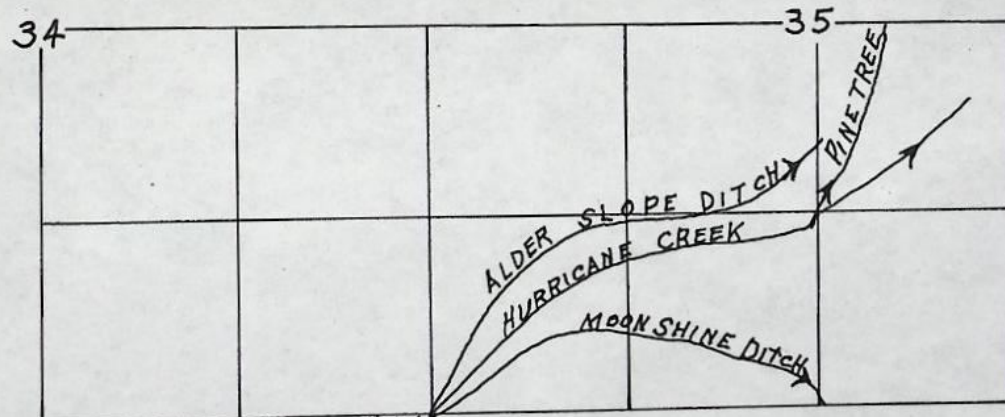 34
35
PINE TREE
ALDER SLOPE DITCH
HURRICANE CREEK
MOONSHINE DITCH